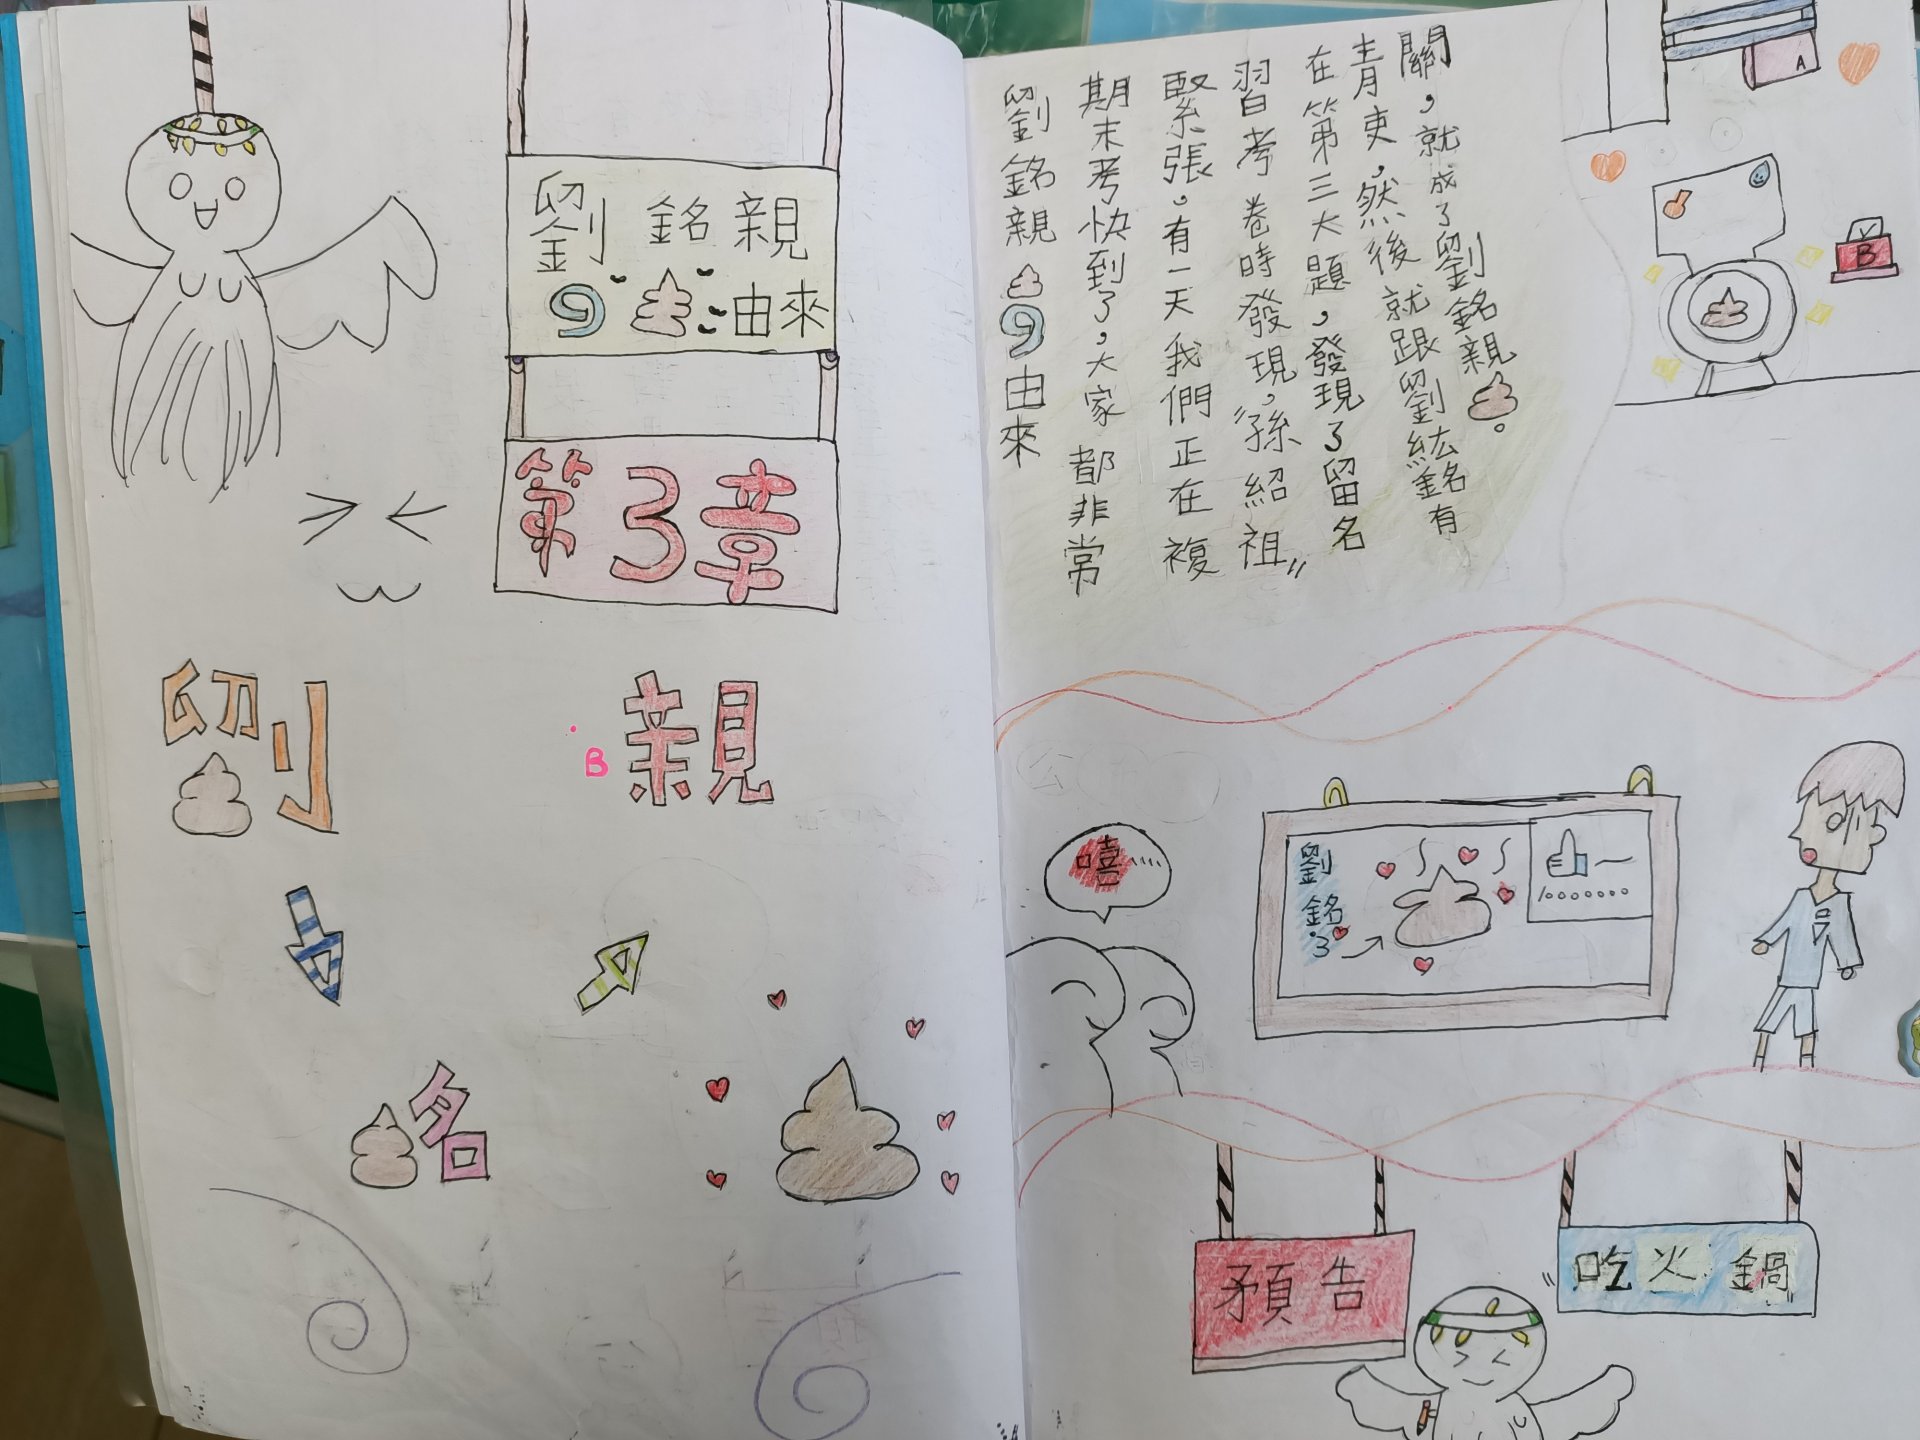 劉銘親
9💩由來
第3章
親
B
劉銘親💩9由來
期末考快到了，大家都非常
緊張。有一天我們正在複
習考卷時發現，"孫紹祖"
在第三大題，發現了留名
青吏，然後就跟劉紘銘有
關，就成了劉銘親💩。
A
B
嘻
劉銘3
預告
"吃火鍋"